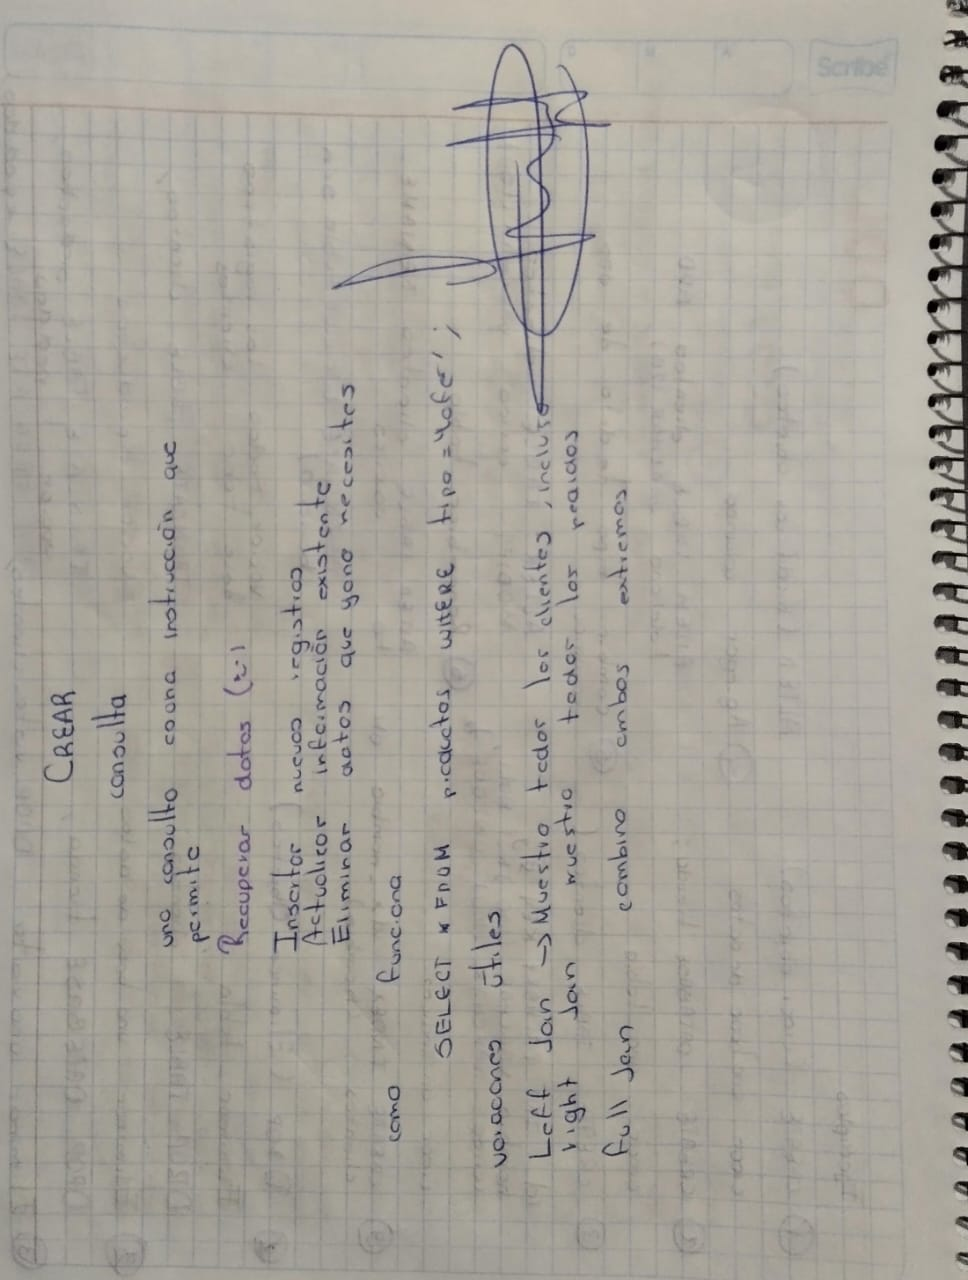 Scribe
CREAR
consulta
una consulta es una instrucción que
permite
Recuperar datos
Insertar nuevos registros
Actualizar información existente
Eliminar datos que ya no necesites
como funciona
SELECT * FROM productos WHERE tipo = 'café';
variaciones útiles
Left Join → Muestra todos los clientes, incluso
right Join muestra todos los pedidos
full Join combina ambos extremos